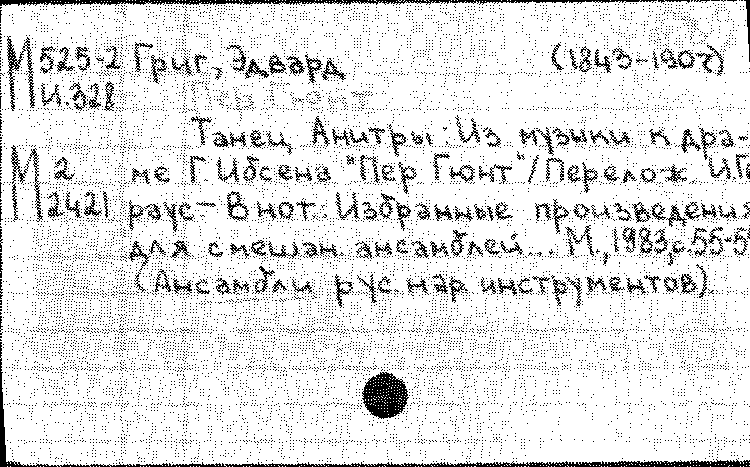 М 525-2 Григ, Эдвард (1843-1907)
И.328 Пер Гюнт
Танец Анитры: Из музыки к дра-
М 2 ме Г. Ибсена "Пер Гюнт"/Перелож. И.
2421 раус.- В нот.: Избранные произведения
для смешан. ансамблей... М., 1983, с.55-5
(Ансамбли рус. нар. инструментов).